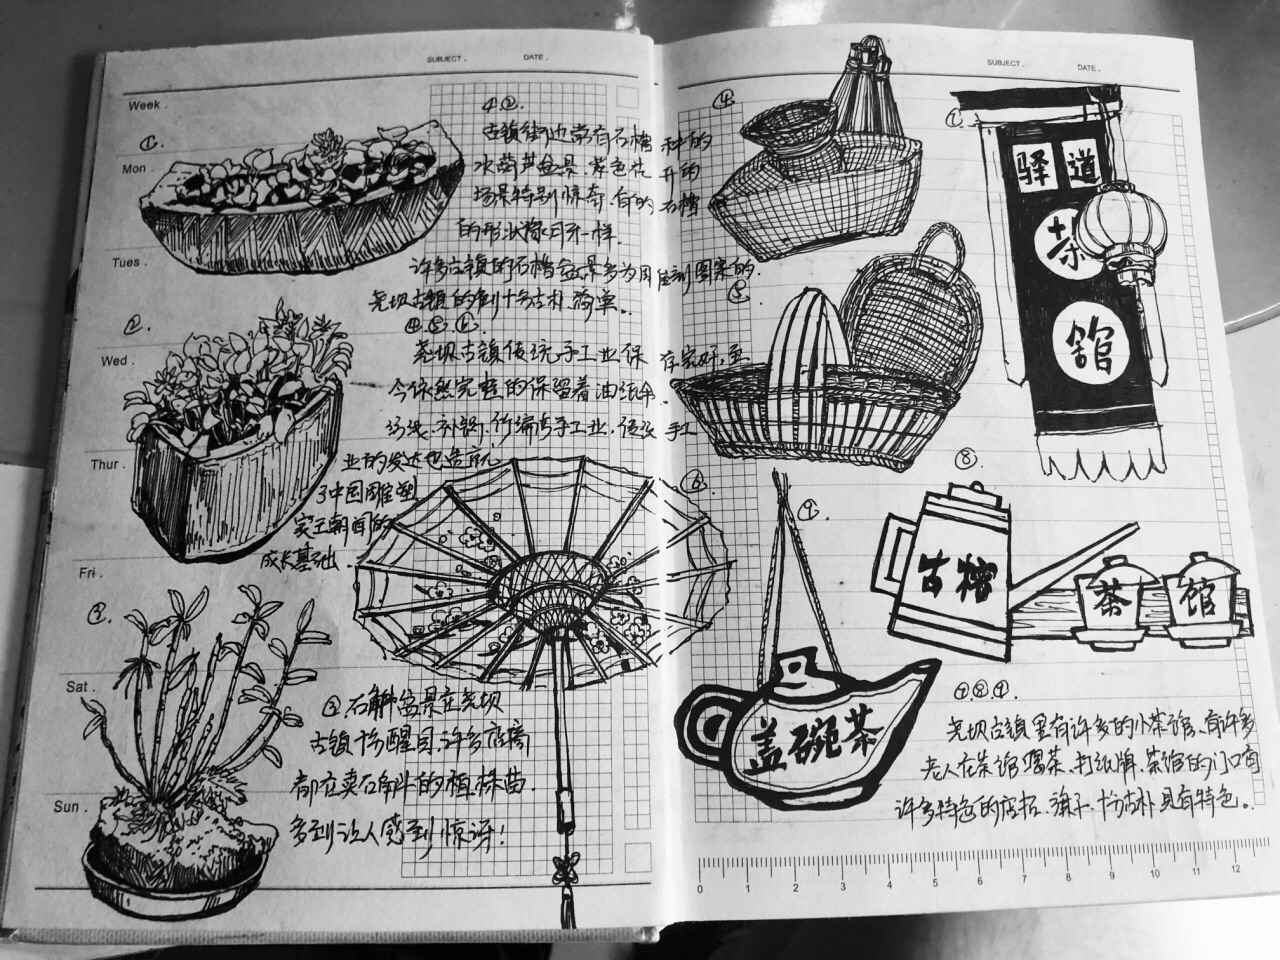 SUBJECT. DATE.
Week.
Mon.
Tues.
Wed.
Thur.
Fri.
Sat.
Sun.
①.
②.
③.
①.②.
古镇街边常有石槽种的
水葫芦盆景.紫色花开的
场景特别惊奇.有的石槽
的形状像月牙一样.
许多古镇的石槽盆景多为图案的.
尧坝古镇的则十分古朴.简单.
④.⑤.⑥.
尧坝古镇传统手工业保存完好,至
今依然完整的保留着油纸伞.
补锅.竹编等手工业.传统手工
业的发达也造就
了中国雕塑
家王朝闻的
成长基础
③石斛盆景在尧坝
古镇十分醒目.许多店铺
都在卖石斛的植株曲.
多到让人感到惊讶!
SUBJECT. DATE.
④
⑤
⑥
⑦
驿道
茶
馆
⑧.
古榕
茶馆
⑨
盖碗茶
⑦.⑧.⑨.
尧坝古镇里有许多的小茶馆、有许多
老人在茶馆喝茶.打纸牌.茶馆的门口有
许多特色的店招.十分古朴具有特色。
0 1 2 3 4 5 6 7 8 9 10 11 12